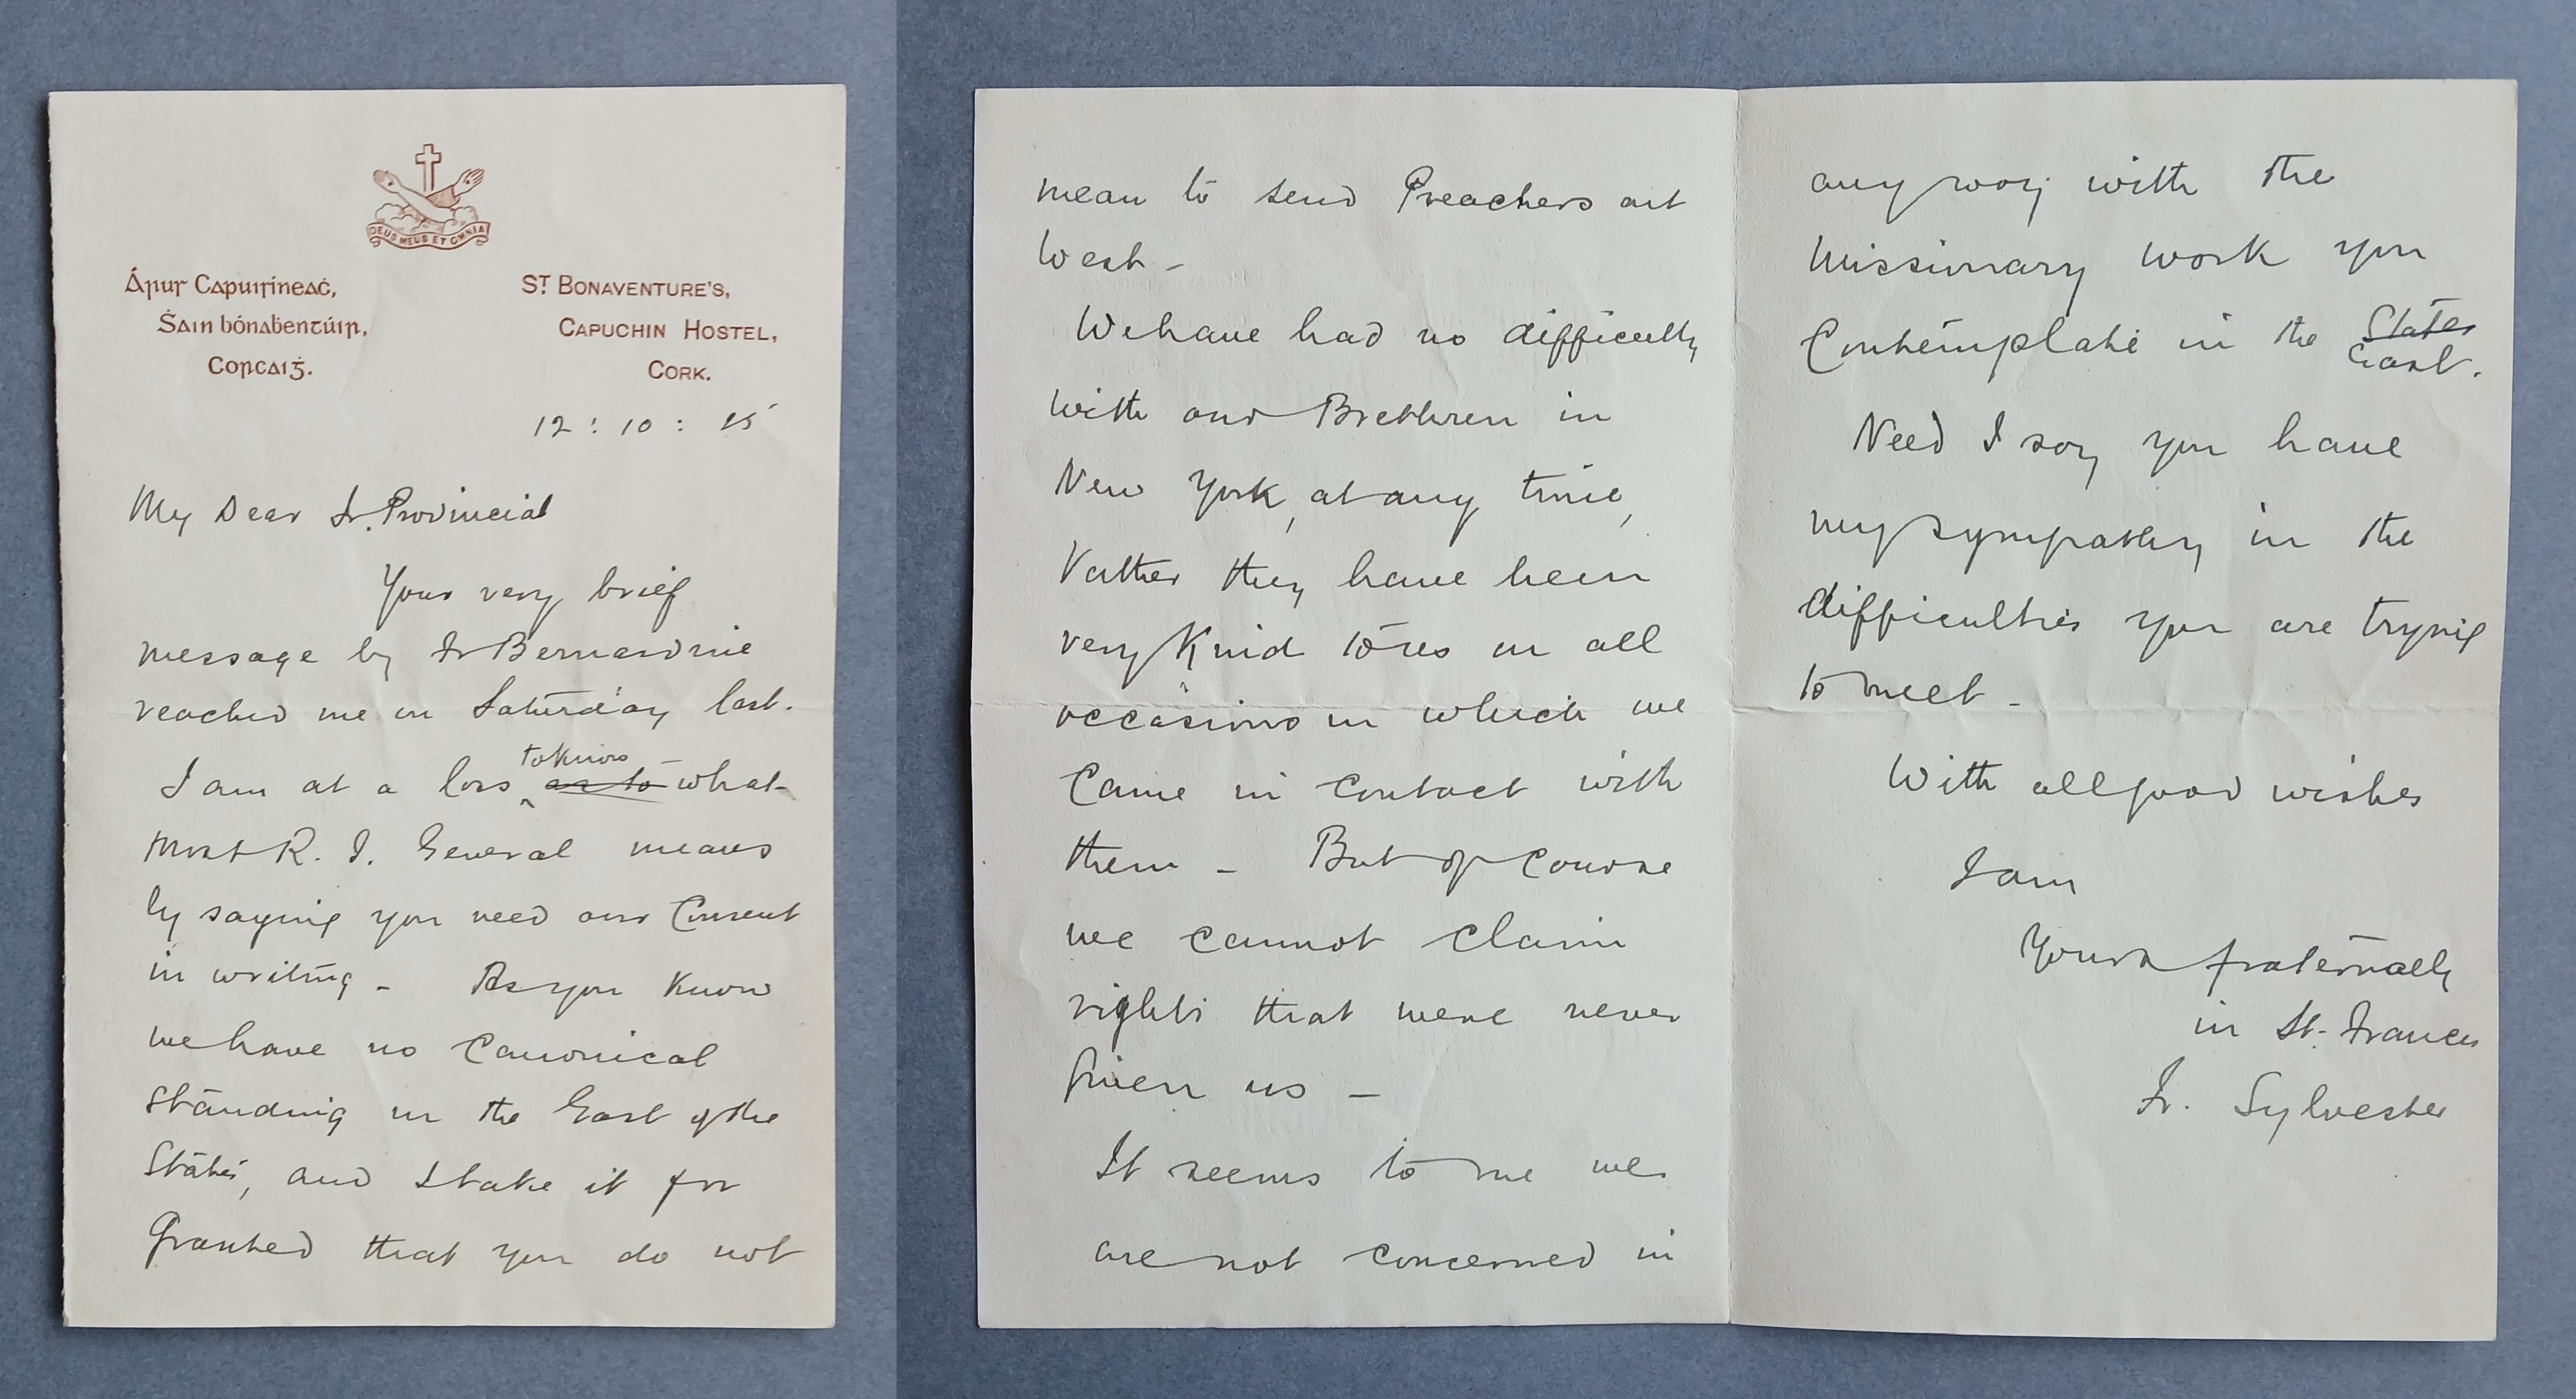 DEUS MEUS ET OMNIA
Árus Capuisíneaċ,
Ṡain bónaḃentúir,
Corcaiġ.
ST BONAVENTURE'S,
CAPUCHIN HOSTEL,
CORK.
12 : 10 : 25
My Dear Fr. Provincial
Your very brief
message by Fr Bernardine
reached me on Saturday last.
to know
I am at a loss as to what
Most R. F. General means
by saying you need our Consent
in writing - As you know
we have no Canonical
standing in the East of the
States, and I take it for
granted that you do not
mean to send Preachers out
West -
We have had no difficulty
with our Brethren in
New York, at any time,
rather they have been
very kind to us on all
occasions on which we
came in contact with
them - But of course
we cannot claim
rights that were never
given us -
It seems to me we
are not concerned in
any way with the
missionary work you
Contemplate in the States
East.
Need I say you have
my sympathy in the
difficulties you are trying
to meet -
With all good wishes
I am
Yours fraternally
in St. Francis
Fr. Sylvester